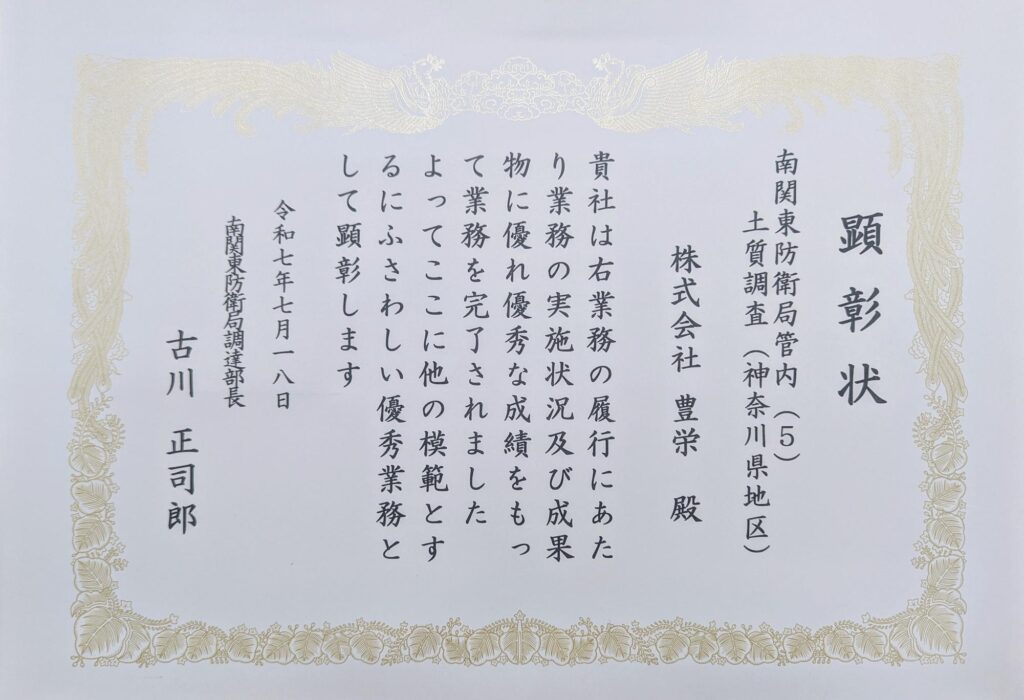 顕彰状
南関東防衛局管内（５）
土質調査（神奈川県地区）
株式会社 豊栄 殿
貴社は右業務の履行にあた
り業務の実施状況及び成果
物に優れ優秀な成績をもっ
て業務を完了されました
よってここに他の模範とす
るにふさわしい優秀業務と
して顕彰します
令和七年七月一八日
南関東防衛局調達部長
古川 正司郎